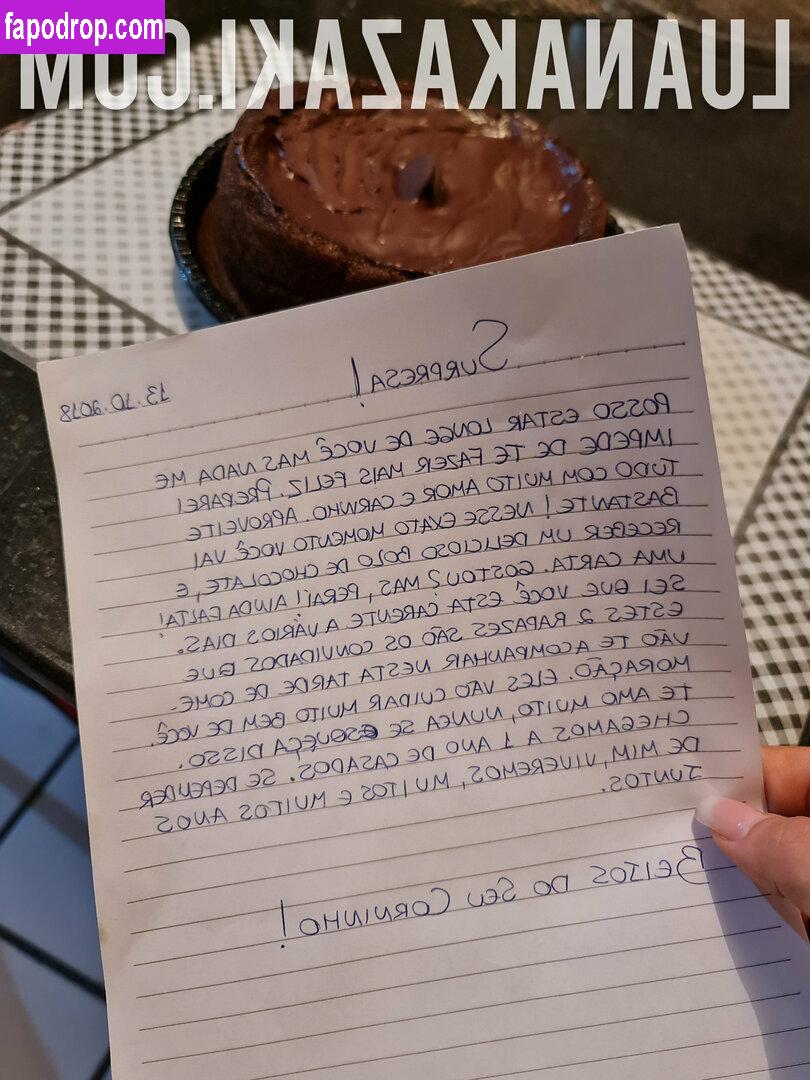 fapodrop.com
LUANAKAZAKI.COM
13.10.2018
SURPRESA!
POSSO ESTAR LONGE DE VOCÊ MAS NADA ME
IMPEDE DE TE FAZER MAIS FELIZ. PREPAREI
TUDO COM MUITO AMOR E CARINHO. APROVEITE
BASTANTE! NESSE EXATO MOMENTO VOCÊ VAI
RECEBER UM DELICIOSO BOLO DE CHOCOLATE, E
UMA CARTA. GOSTOU? MAS, PERAÍ! AINDA FALTA!
SEI QUE VOCÊ ESTA CARENTE A VÁRIOS DIAS.
ESTES 2 RAPAZES SÃO OS CONVIDADOS QUE
VÃO TE ACOMPANHAR NESTA TARDE DE COME-
MORAÇÃO. ELES VÃO CUIDAR MUITO BEM DE VOCÊ.
TE AMO MUITO, NUNCA SE ESQUEÇA DISSO.
CHEGAMOS A 1 ANO DE CASADOS. SE DEPENDER
DE MIM, VIVEREMOS, MUITOS E MUITOS ANOS
JUNTOS.
BEIJOS DO SEU CORNINHO!